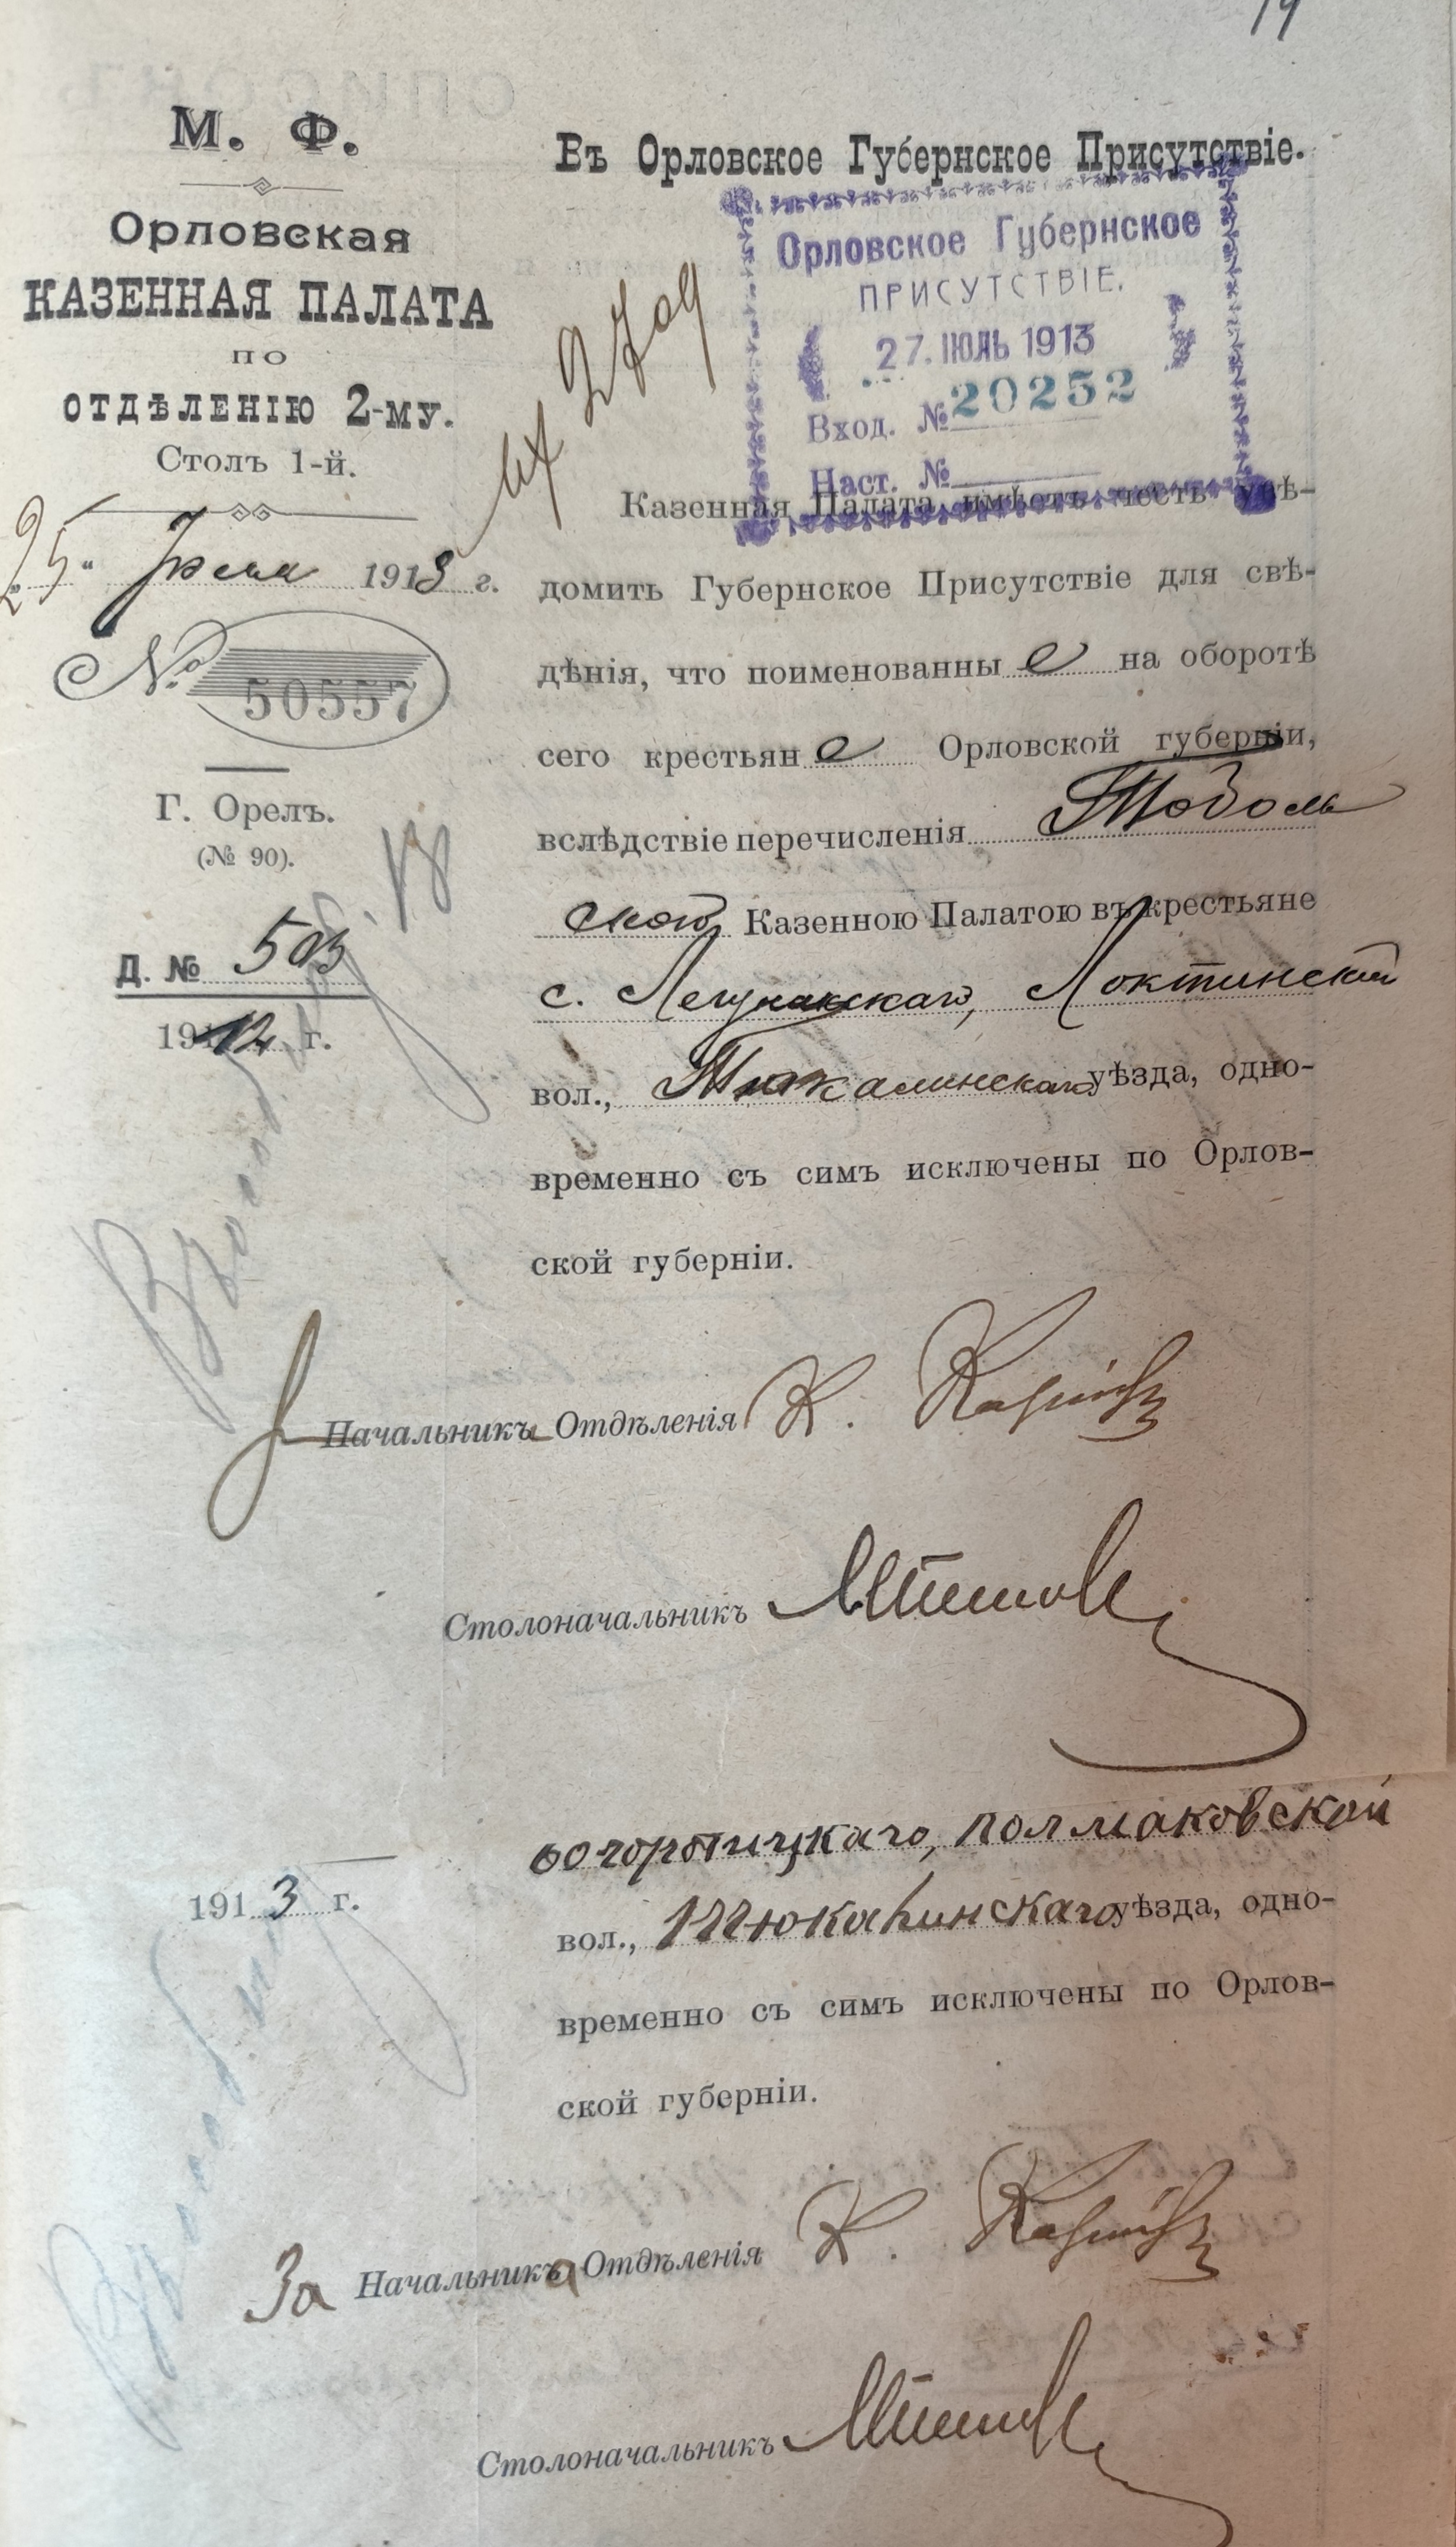 М. Ф.
Орловская
КАЗЕННАЯ ПАЛАТА
ПО
ОТДѢЛЕНІЮ 2-му.
Столъ 1-й.
„25“ Іюля 1913 г.
№ 50557
Г. Орелъ.
(№ 90).
Д. № 503
1912 г.
Въ Орловское Губернское Присутствіе.
Орловское Губернское
ПРИСУТСТВІЕ.
27. ІЮЛЬ 1913
Вход. № 20252
Наст. №
Казенная Палата имѣетъ честь увѣ-
домить Губернское Присутствіе для свѣ-
дѣнія, что поименованны е на оборотѣ
сего крестьян е Орловской губерніи,
вслѣдствіе перечисленія Тоболь
ской Казенною Палатою въ крестьяне
с. Локтинской
вол., Тюкалинскаго уѣзда, одно-
временно съ симъ исключены по Орлов-
ской губерніи.
Начальникъ Отдѣленія К.
Столоначальникъ
Богородицкаго,
1913 г.
вол., Тюкалинскаго уѣзда, одно-
временно съ симъ исключены по Орлов-
ской губерніи.
За Начальника Отдѣленія К.
Столоначальникъ